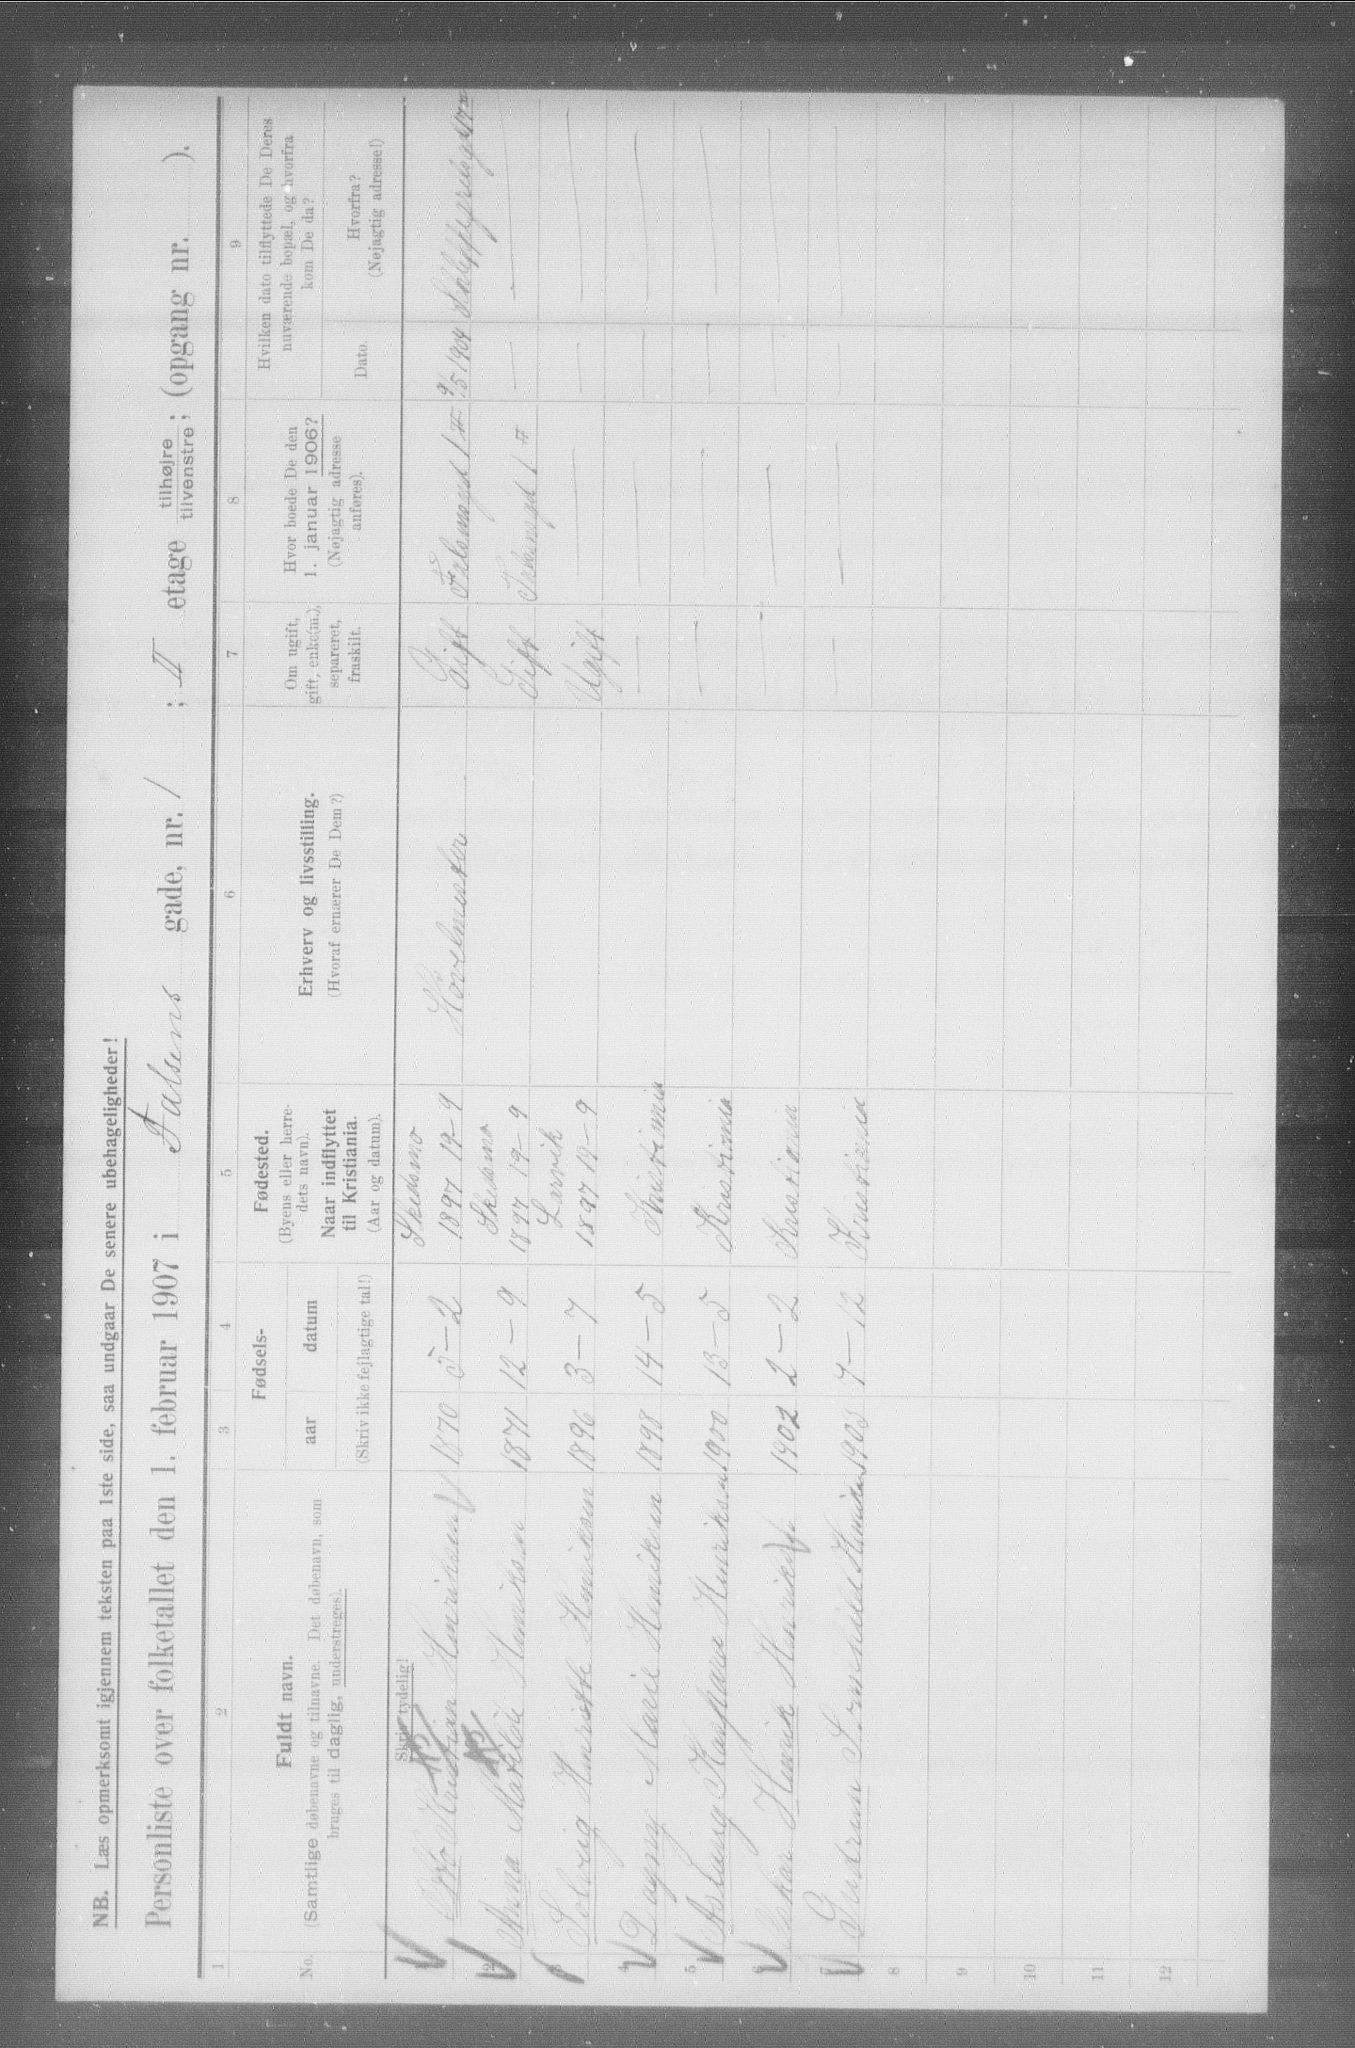 NB. Læs opmerksomt igjennem teksten paa 1ste side, saa undgaar De senere ubehageligheder!
Personliste over folketallet den 1. februar 1907 i Falsens gade, nr. 1 ; II etage tilhøjre tilvenstre; (opgang nr. ).
1 2 3 4 5 6 7 8 9
No.
Fuldt navn.
(Samtlige døbenavne og tilnavne. Det døbenavn, som
bruges til daglig, understreges).
Fødsels-
aar datum
(Skriv ikke fejlagtige tal!)
Fødested.
(Byens eller herre-
dets navn).
Naar indflyttet
til Kristiania.
(Aar og datum).
Erhverv og livsstilling.
(Hvoraf ernærer De Dem?)
Om ugift,
gift, enke(m.),
separeret,
fraskilt.
Hvor boede De den
1. januar 1906?
(Nøjagtig adresse
anføres).
Hvilken dato tilflyttede De Deres
nuværende bopæl, og hvorfra
kom De da?
Dato.
Hvorfra?
(Nøjagtig adresse!)
Skriv tydelig!
Otto Kristian Henriksen 1870 5-2 Skedsmo 1897 19-9 Høvelmester Gift Falsensgd 1 II 9/5 1904
2 Anna Matilde Henriksen 1871 12-9 Skedsmo 1897 19-9 Gift Falsensgd 1 II — —
3 Solveig Henriette Henriksen 1896 3-7 Larvik 1897 19-9 Ugift — — —
4 Dagny Marie Henriksen 1898 14-5 Kristiania — — — —
5 Aslaug Henriksen 1900 13-5 Kristiania — — — —
6 Henrik 1902 2-2 Kristiania — — — —
7 Gudrun 7-12 Kristiania — — — —
8
9
10
11
12